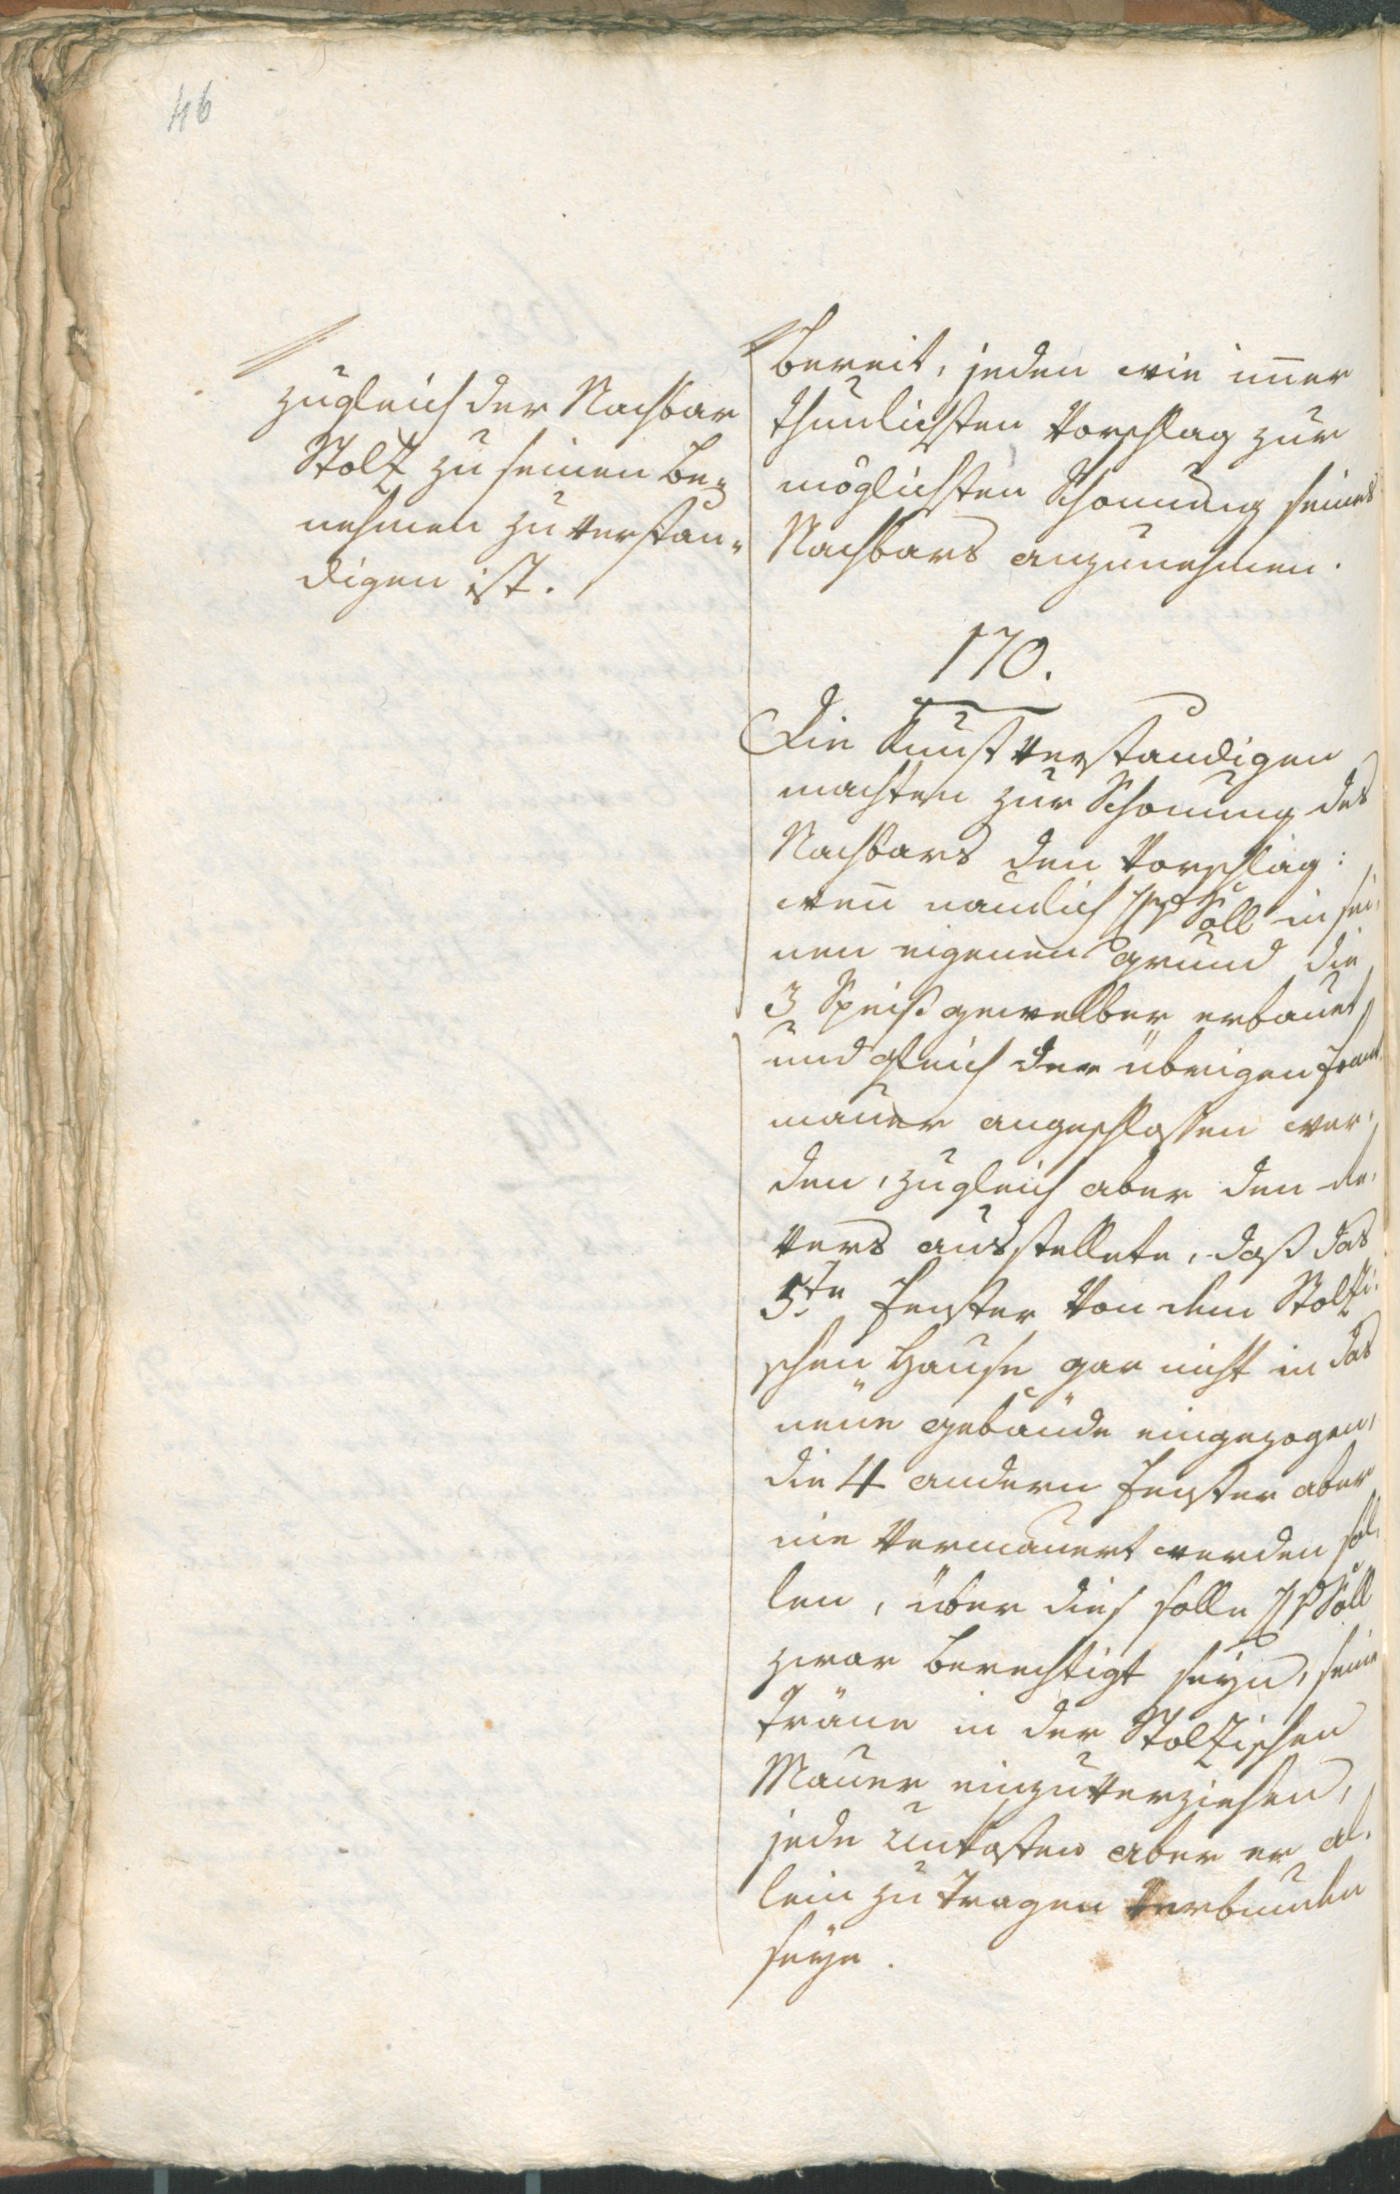 46
zugleich der Nachbar
Stolz zu seinen Be-
nehmen zu verstän-
digen ist.
bereit, jeden wie im̄er
thunlichsten Vorschlag zur
möglichsten Schonnung seines
Nachbars anzunehmen.
170.
Die Kunstverständigen
machten zur Schonung des
Nachbars den Vorschlag:
wen̄ nämlich Söll in sei-
nen eigenen Grund die
3 Speißgewelber erbauet
und gleich der übrigen
mauer angeschlossen wer-
den, zugleich aber den Re-
vers ausstellete, daß das
5te Fenster von dem Stolzi-
schen Hause gar nicht in das
neüe gebäude eingezogen,
die 4 andern Fenster aber
nie vermauert werden sol-
len, über dies solle Söll
zwar berechtigt seyn, seine
Träme in der Stolzischen
Mauer einzuverziehen,
jede Unkosten aber er al-
lein zu tragen verbunden
seye.